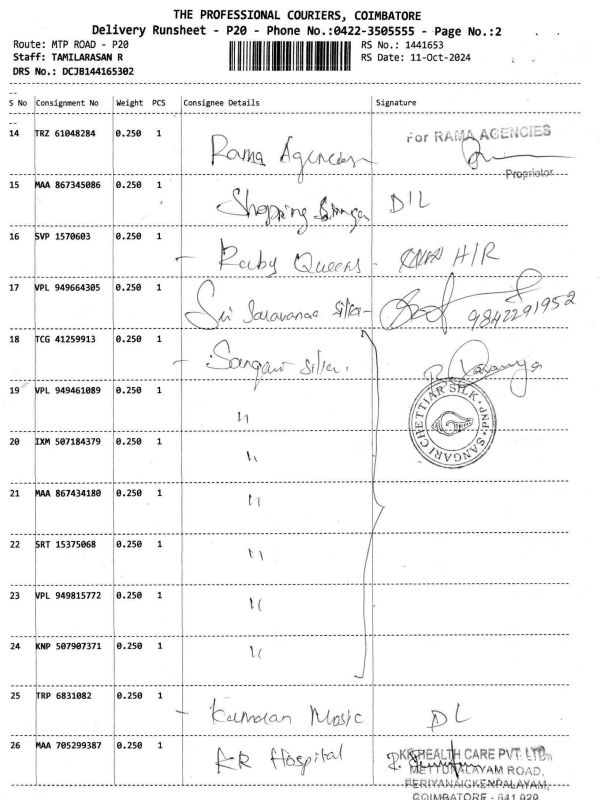 THE PROFESSIONAL COURIERS, COIMBATORE
Delivery Runsheet - P20 - Phone No.:0422-3505555 - Page No.:2
Route: MTP ROAD - P20 RS No.: 1441653
Staff: TAMILARASAN R RS Date: 11-Oct-2024
DRS No.: DCJB144165302
S No Consignment No Weight PCS Consignee Details Signature
14 TRZ 61048284 0.250 1 Rama Agencies For RAMA AGENCIES
Proprietor
15 MAA 867345086 0.250 1 Shopping D/L
16 SVP 1570603 0.250 1 - Ruby Queens - H/R
17 VPL 949664305 0.250 1 Sri Saravana Silk - 9842291952
18 TCG 41259913 0.250 1 - Sangari silk.
SANGARI CHETTIAR SILK PNP
19 VPL 949461089 0.250 1 "
20 IXM 507184379 0.250 1 "
21 MAA 867434180 0.250 1 "
22 SRT 15375068 0.250 1 "
23 VPL 949815772 0.250 1 "
24 KNP 507907371 0.250 1 "
25 TRP 6831082 0.250 1 - Music DL
26 MAA 705299387 0.250 1 Hospital HEALTH CARE PVT. LTD.
METTUPALAYAM ROAD,
PERIYANAICKENPALAYAM,
COIMBATORE - 641 020